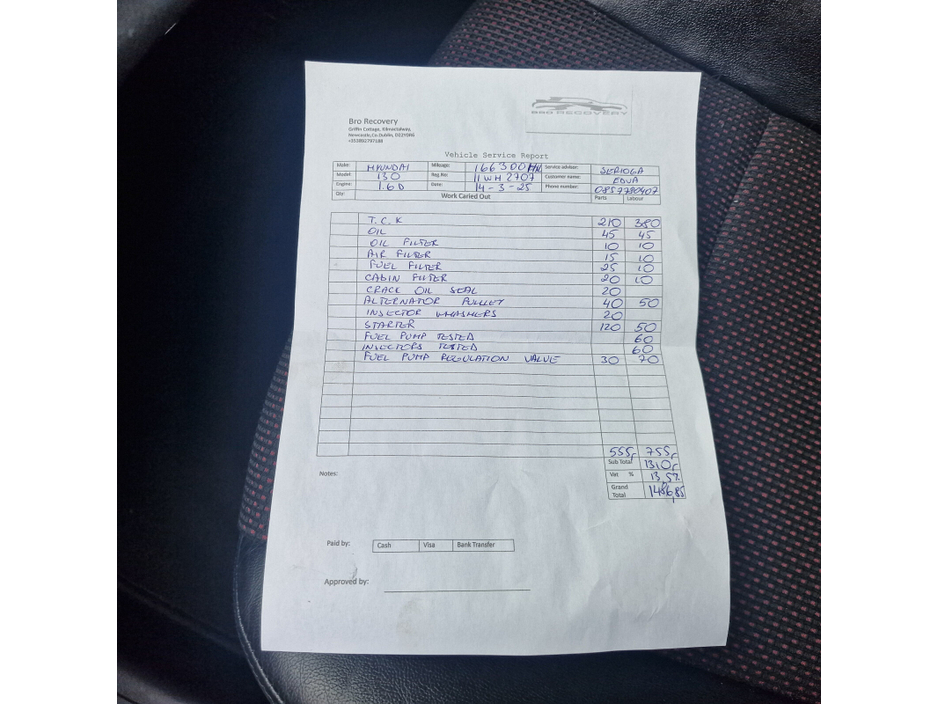 Bro Recovery
Griffin Cottage, Kilmactalway,
Newcastle, Co.Dublin, D22YD96
+353892797188
BRO RECOVERY
Vehicle Service Report
Make: HYUNDAI Mileage: 166300 Service advisor: SERIOGA
Model: I30 Reg.No: 11WH2707 Customer name: EDVA
Engine: 1.6D Date: 14-3-25 Phone number: 0857780407
Qty: Work Caried Out Parts Labour
T.C.K 210 380
OIL 45 45
OIL FILTER 10 10
AIR FILTER 15 10
FUEL FILTER 25 10
CABIN FILTER 20 10
CRACK OIL SEAL 20
ALTERNATOR PULLEY 40 50
INJECTOR WHASHERS 20
STARTER 120 50
FUEL PUMP TESTED 60
INJECTORS TESTED 60
FUEL PUMP REGULATION VALVE 30 70
555 755
Sub Total 1310
Vat % 13,5%
Grand Total 1486,85
Notes:
Paid by: Cash Visa Bank Transfer
Approved by: